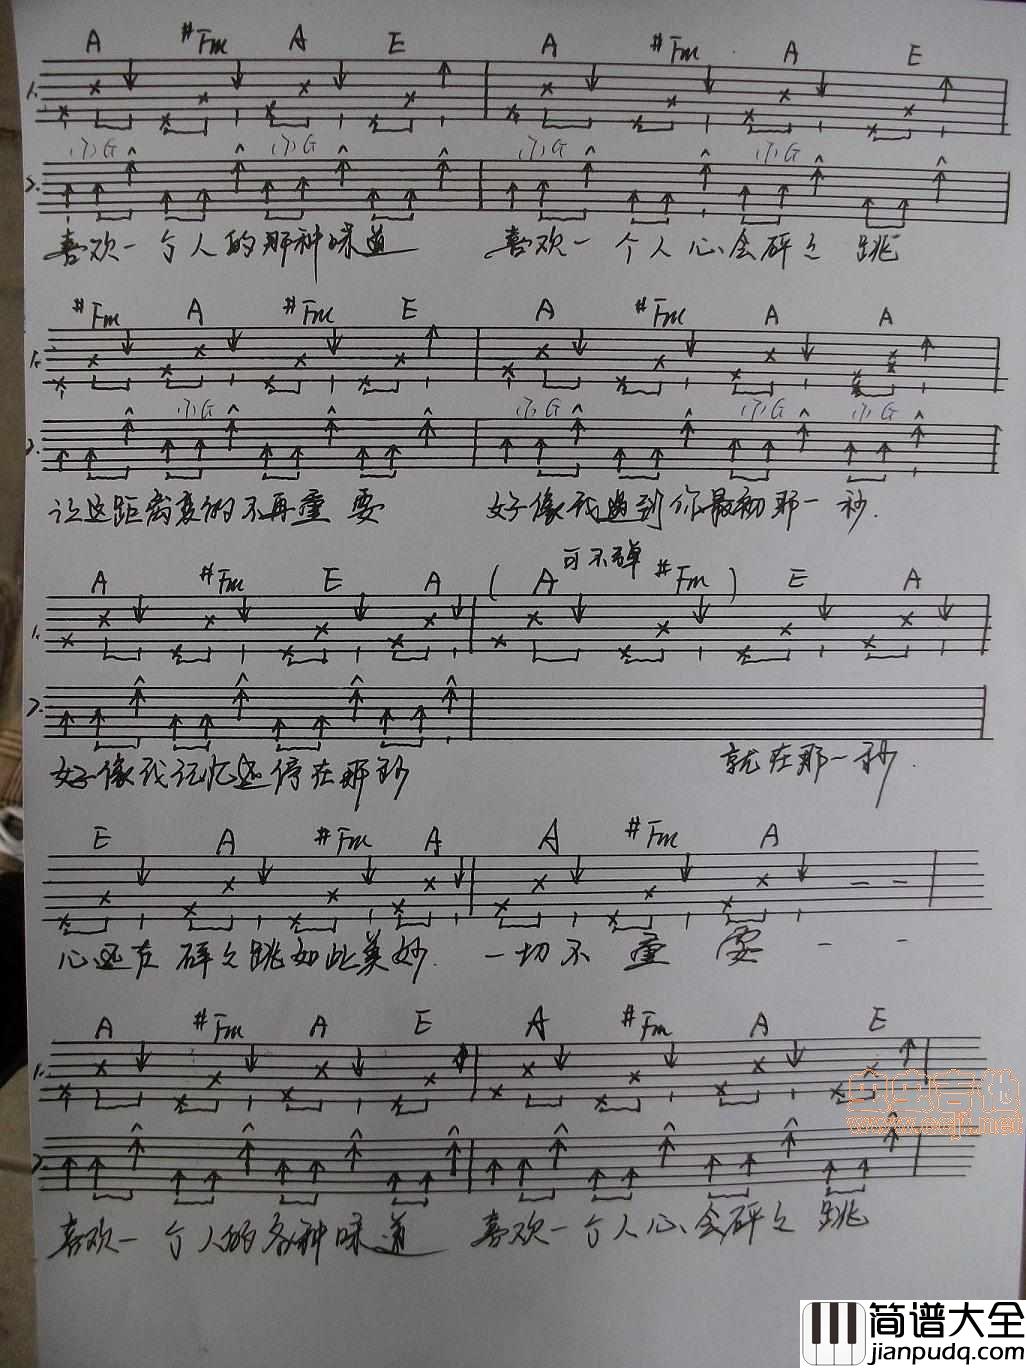 A #Fm A E A #Fm A E
1.
(7)G (7)G (7)G (7)G
2.
喜欢一个人的那种味道 喜欢一个人心会砰之跳
#Fm A #Fm E A #Fm A A
1.
(7)G (7)G (7)G (7)G
2.
让这距离变的不再重要 好像我遇到你最初那一秒.
可不弹
A #Fm E A ( A #Fm ) E A
1.
2.
好像我记忆还停在那秒 就在那一秒.
E A #Fm A A #Fm A
心还在砰之跳如此美妙. 一切不重要 - -
A #Fm A E A #Fm A E
1.
虫虫吉他
www.ccjt.net
2.
喜欢一个人的各种味道 喜欢一个人心会砰之跳
简谱大全
jianpudq.com